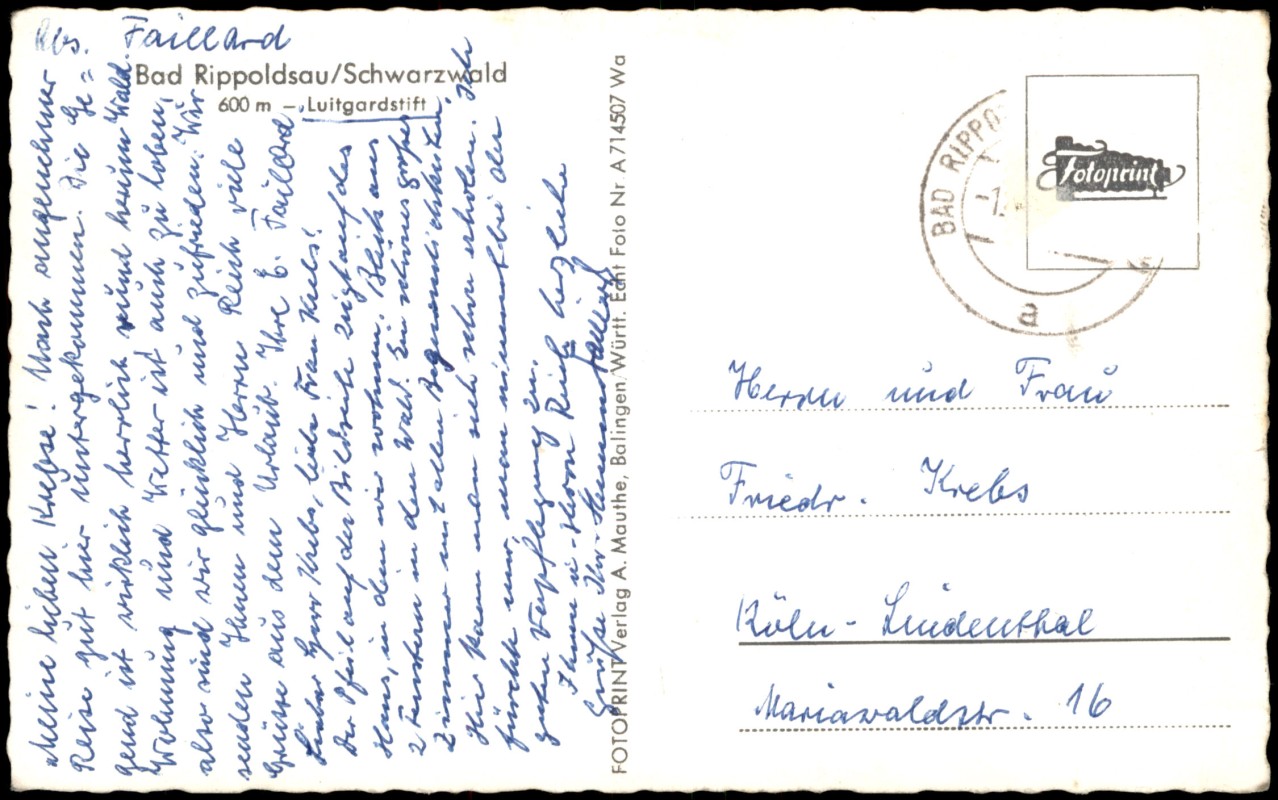 Abs. Faillard
Bad Rippoldsau/Schwarzwald
600 m – Luitgardstift
Meine lieben Krebse! Nach angenehmer
Reise gut hier untergekommen. Die Ge=
gend ist wirklich herrlich rund herum Wald.
Wohnung und Wetter ist auch zu loben,
also sind wir glücklich und zufrieden. Wir
senden Ihnen und Herrn Reich viele
Grüsse aus dem Urlaub. Ihre E. Faillard.
Lieber Herr Krebs, liebe Frau Krebs!
Der Pfeil auf der Bildseite zeigt auf das
Haus, in dem wir wohnen. Blick aus
2 Fenstern in den Wald. Ein schönes großes
Zimmer mit allen Bequemlichkeiten.
Hier kann man sich schon erholen. Ich
fürchte nur, man nimmt bei der
guten Verpflegung zu.
Ihnen u. Herrn Reich herzliche
Grüße Ihr Faillard
FOTOPRINT Verlag A. Mauthe, Balingen/Württ. Echt Foto Nr. A 714507 Wa
BAD RIPPO
7.
a
Fotoprint
Herrn und Frau
Friedr. Krebs
Köln-Lindenthal
Mariawaldstr. 16